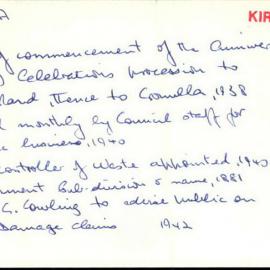 KIR
of commencement of the Anniver
Celebrations procession to
land, thence to Cronulla, 1938
monthly by Council staff for
business, 1940
Controller of Waste appointed, 1940
ment Sub-division & name, 1881
G. Cowling to advise public on
Damage claims 1942